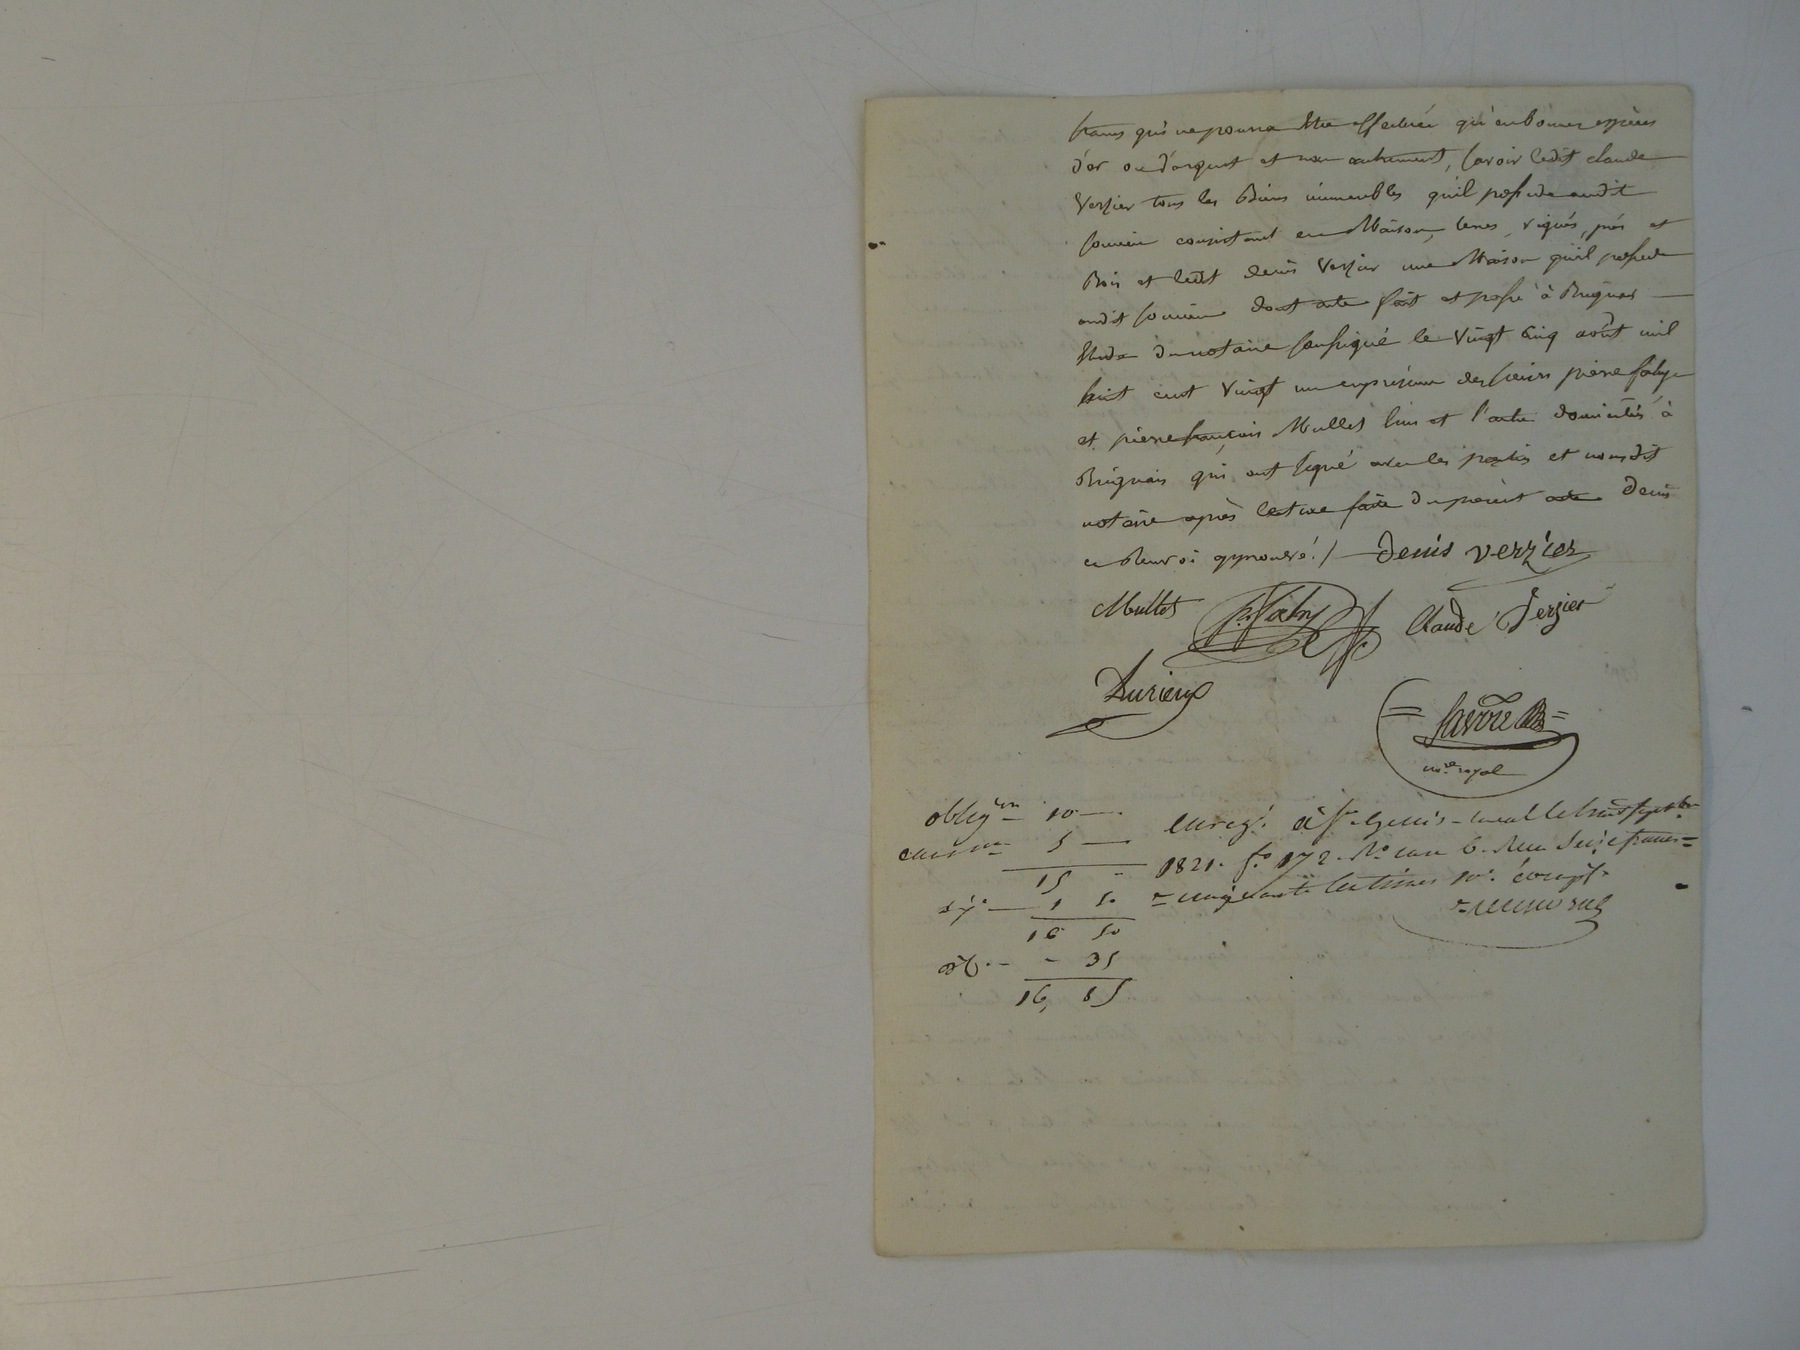 francs qui ne pourra être effectuée qu'en bonnes espèces
d'or ou d'argent et non autrement, savoir ledit claude
Verzier tous les Biens immeubles qu'il possede audit
soucieu consistant en Maison, terres, vignes, prés et
Bois et ledit denis Verzier une Maison qu'il possede
audit soucieu dont acte fait et passé à Brignais
Etude du notaire soussigné le Vingt Cinq août mil
huit cent Vingt un en présence des sieurs pierre faby
et pierre françois Mullet l'un et l'autre domiciliés à
Brignais qui ont signé avec les parties et nousdit
notaire après lecture faite du présent acte
renvoi approuvé ./. Denis verzier
Mullet p. faby Claude Verzier
Durieux
nre royal
obligon 10 —
5 —
15 -
1 50
16 50
- 35
16, 85
Enregé à St Genis-Laval le sept bre
1821. fo 172. Ro case 6. Reçu seize francs =
= cinquante centimes 10e compt.